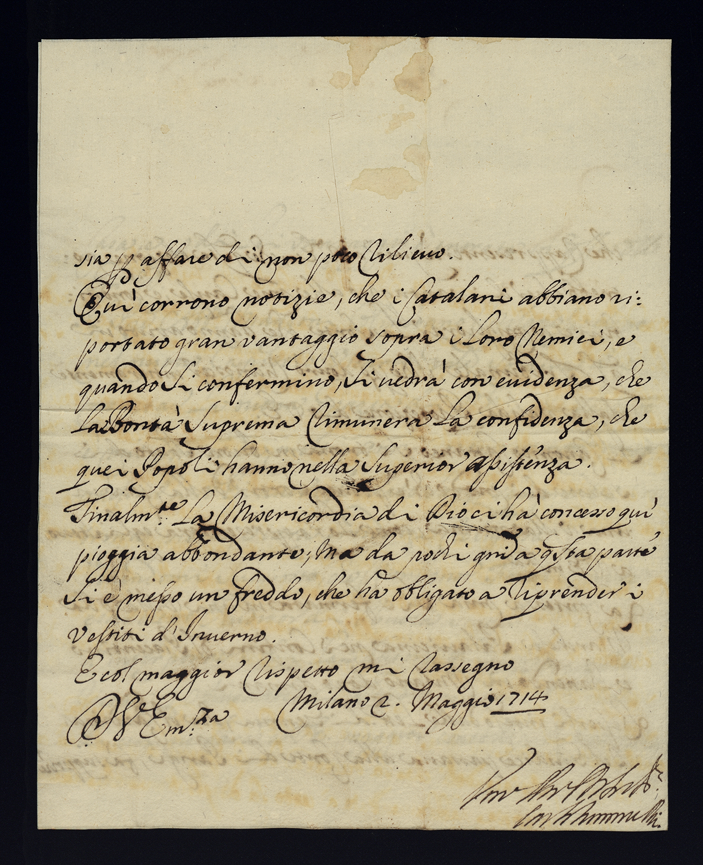 sia p affare di non poco rilievo.
Qui corrono notizie, che i Catalani abbiano ri:
portato gran vantaggio sopra i Loro Nemici, e
quando si confermino, si vedrà con evidenza, che
La Bontà Suprema rimunera La confidenza, che
quei Popoli hanno nella Superior assistenza.
Finalm.te La Misericordia di Dio ci hà concesso qui
pioggia abbondante, Ma da pochi gni a qsta parte
Si è messo un freddo, che hà obligato a riprender i
vestiti d'Inverno.
E col maggior rispetto mi rassegno
Di V. Em.za Milano 2. Maggio 1714